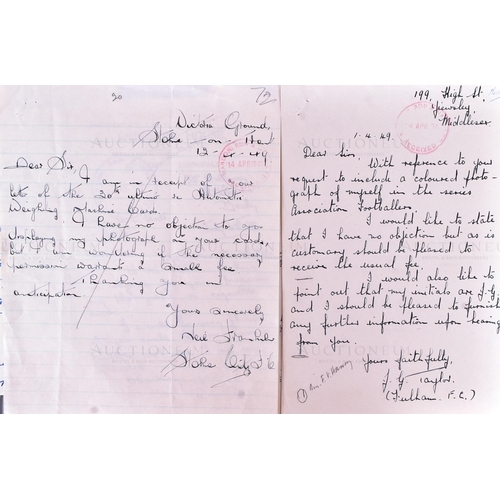 20
72
Victoria Ground,
Stoke-on-Trent
12-4-49
Dear Sir,
I am in receipt of your
lets of the 20th ultimo re Automatic
Weighing Machine Cards.
I have no objection to you
displaying my photograph on your cards,
but I am wondering if the necessary
permission warrants a small fee
Thanking you in
anticipation
Yours sincerely
Neil Franklin
Stoke City F.C
199, High St,
Yiewsley,
Middlesex
1.4.49.
Dear Sir,
With reference to your
request to include a coloured photo-
graph of myself in the series
Association Footballers.
I would like to state
that I have no objection but as is
customary should be pleased to
receive the usual fee.
I would also like to
point out that my initials are J.G.
and I should be pleased to furnish
any further information upon hearing
from you.
Yours faithfully,
J. G. Taylor.
(Fulham. F.C.)